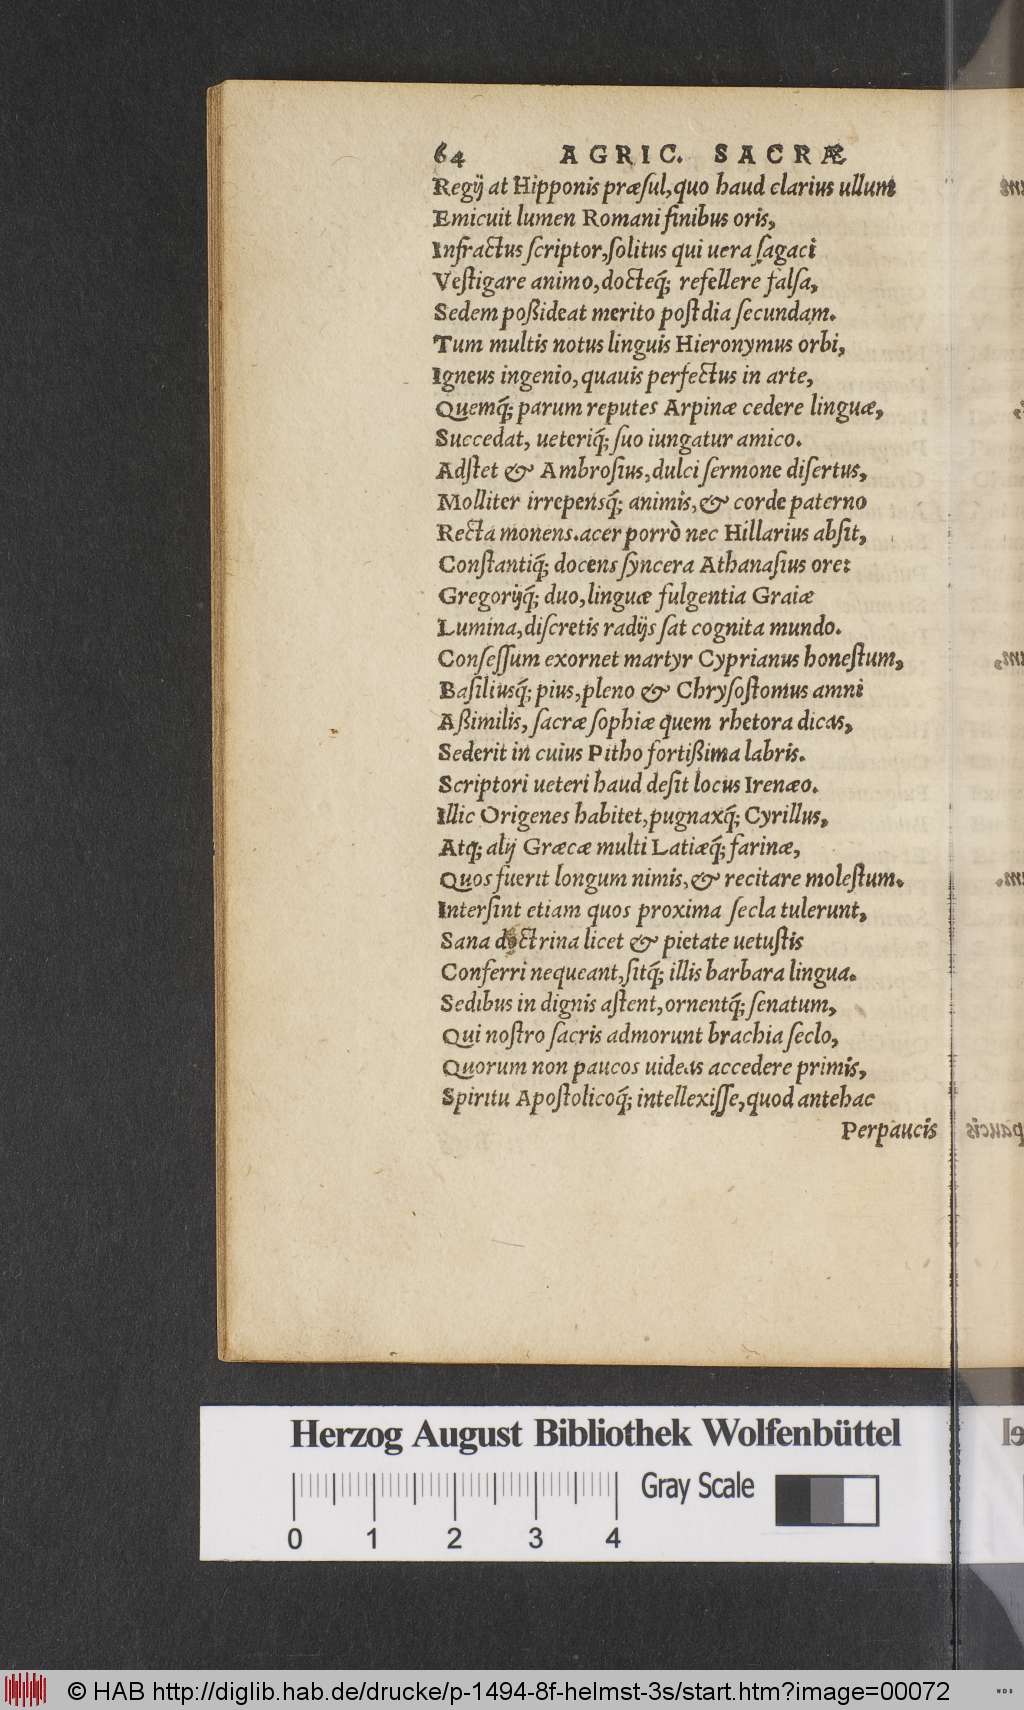 64 AGRIC. SACRÆ
Regij at Hipponis præſul, quo haud clarius ullum
Emicuit lumen Romani finibus oris,
Infractus ſcriptor, ſolitus qui uera ſagaci
Veſtigare animo, docteq́; refellere falſa,
Sedem poßideat merito poſt dia ſecundam.
Tum multis notus linguis Hieronymus orbi,
Igneus ingenio, quauis perfectus in arte,
Quemq́; parum reputes Arpinæ cedere linguæ,
Succedat, ueteriq́; ſuo iungatur amico.
Adſtet & Ambroſius, dulci ſermone diſertus,
Molliter irrepensq́; animis, & corde paterno
Recta monens. acer porrò nec Hillarius abſit,
Conſtantiq́; docens ſyncera Athanaſius ore:
Gregorijq́; duo, linguæ fulgentia Graiæ
Lumina, diſcretis radijs ſat cognita mundo.
Conſeſſum exornet martyr Cyprianus honeſtum,
Baſiliusq́; pius, pleno & Chryſoſtomus amni
Aßimilis, ſacræ ſophiæ quem rhetora dicas,
Sederit in cuius Pitho fortißima labris.
Scriptori ueteri haud deſit locus Irenæo.
Illic Origenes habitet, pugnaxq́; Cyrillus,
Atq; alij Græcæ multi Latiæq́; farinæ,
Quos fuerit longum nimis, & recitare moleſtum.
Interſint etiam quos proxima ſecla tulerunt,
Sana doctrina licet & pietate uetuſtis
Conferri nequeant, ſitq́; illis barbara lingua.
Sedibus in dignis aſtent, ornentq́; ſenatum,
Qui noſtro ſacris admorunt brachia ſeclo,
Quorum non paucos uideas accedere primis,
Spiritu Apoſtolicoq́; intellexiſſe, quod antehac
Perpaucis
Herzog August Bibliothek Wolfenbüttel
Gray Scale
0 1 2 3 4
© HAB http://diglib.hab.de/drucke/p-1494-8f-helmst-3s/start.htm?image=00072